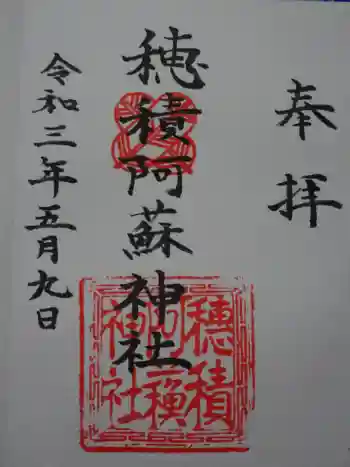 奉拝
穂積阿蘇神社
令和三年五月九日
穂積
神社